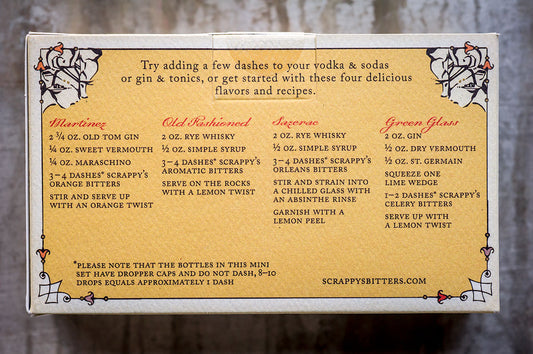 Try adding a few dashes to your vodka & sodas
or gin & tonics, or get started with these four delicious
flavors and recipes.
Martinez
2 3/4 OZ. OLD TOM GIN
1/4 OZ. SWEET VERMOUTH
1/4 OZ. MARASCHINO
3–4 DASHES* SCRAPPY'S
ORANGE BITTERS
STIR AND SERVE UP
WITH AN ORANGE TWIST
Old Fashioned
2 OZ. RYE WHISKY
1/2 OZ. SIMPLE SYRUP
3–4 DASHES* SCRAPPY'S
AROMATIC BITTERS
SERVE ON THE ROCKS
WITH A LEMON TWIST
Sazerac
2 OZ. RYE WHISKY
1/2 OZ. SIMPLE SYRUP
3–4 DASHES* SCRAPPY'S
ORLEANS BITTERS
STIR AND STRAIN INTO
A CHILLED GLASS WITH
AN ABSINTHE RINSE
GARNISH WITH A
LEMON PEEL
Green Glass
2 OZ. GIN
1/2 OZ. DRY VERMOUTH
1/2 OZ. ST. GERMAIN
SQUEEZE ONE
LIME WEDGE
1–2 DASHES* SCRAPPY'S
CELERY BITTERS
SERVE UP WITH
A LEMON TWIST
*PLEASE NOTE THAT THE BOTTLES IN THIS MINI
SET HAVE DROPPER CAPS AND DO NOT DASH, 8–10
DROPS EQUALS APPROXIMATELY 1 DASH
SCRAPPYSBITTERS.COM